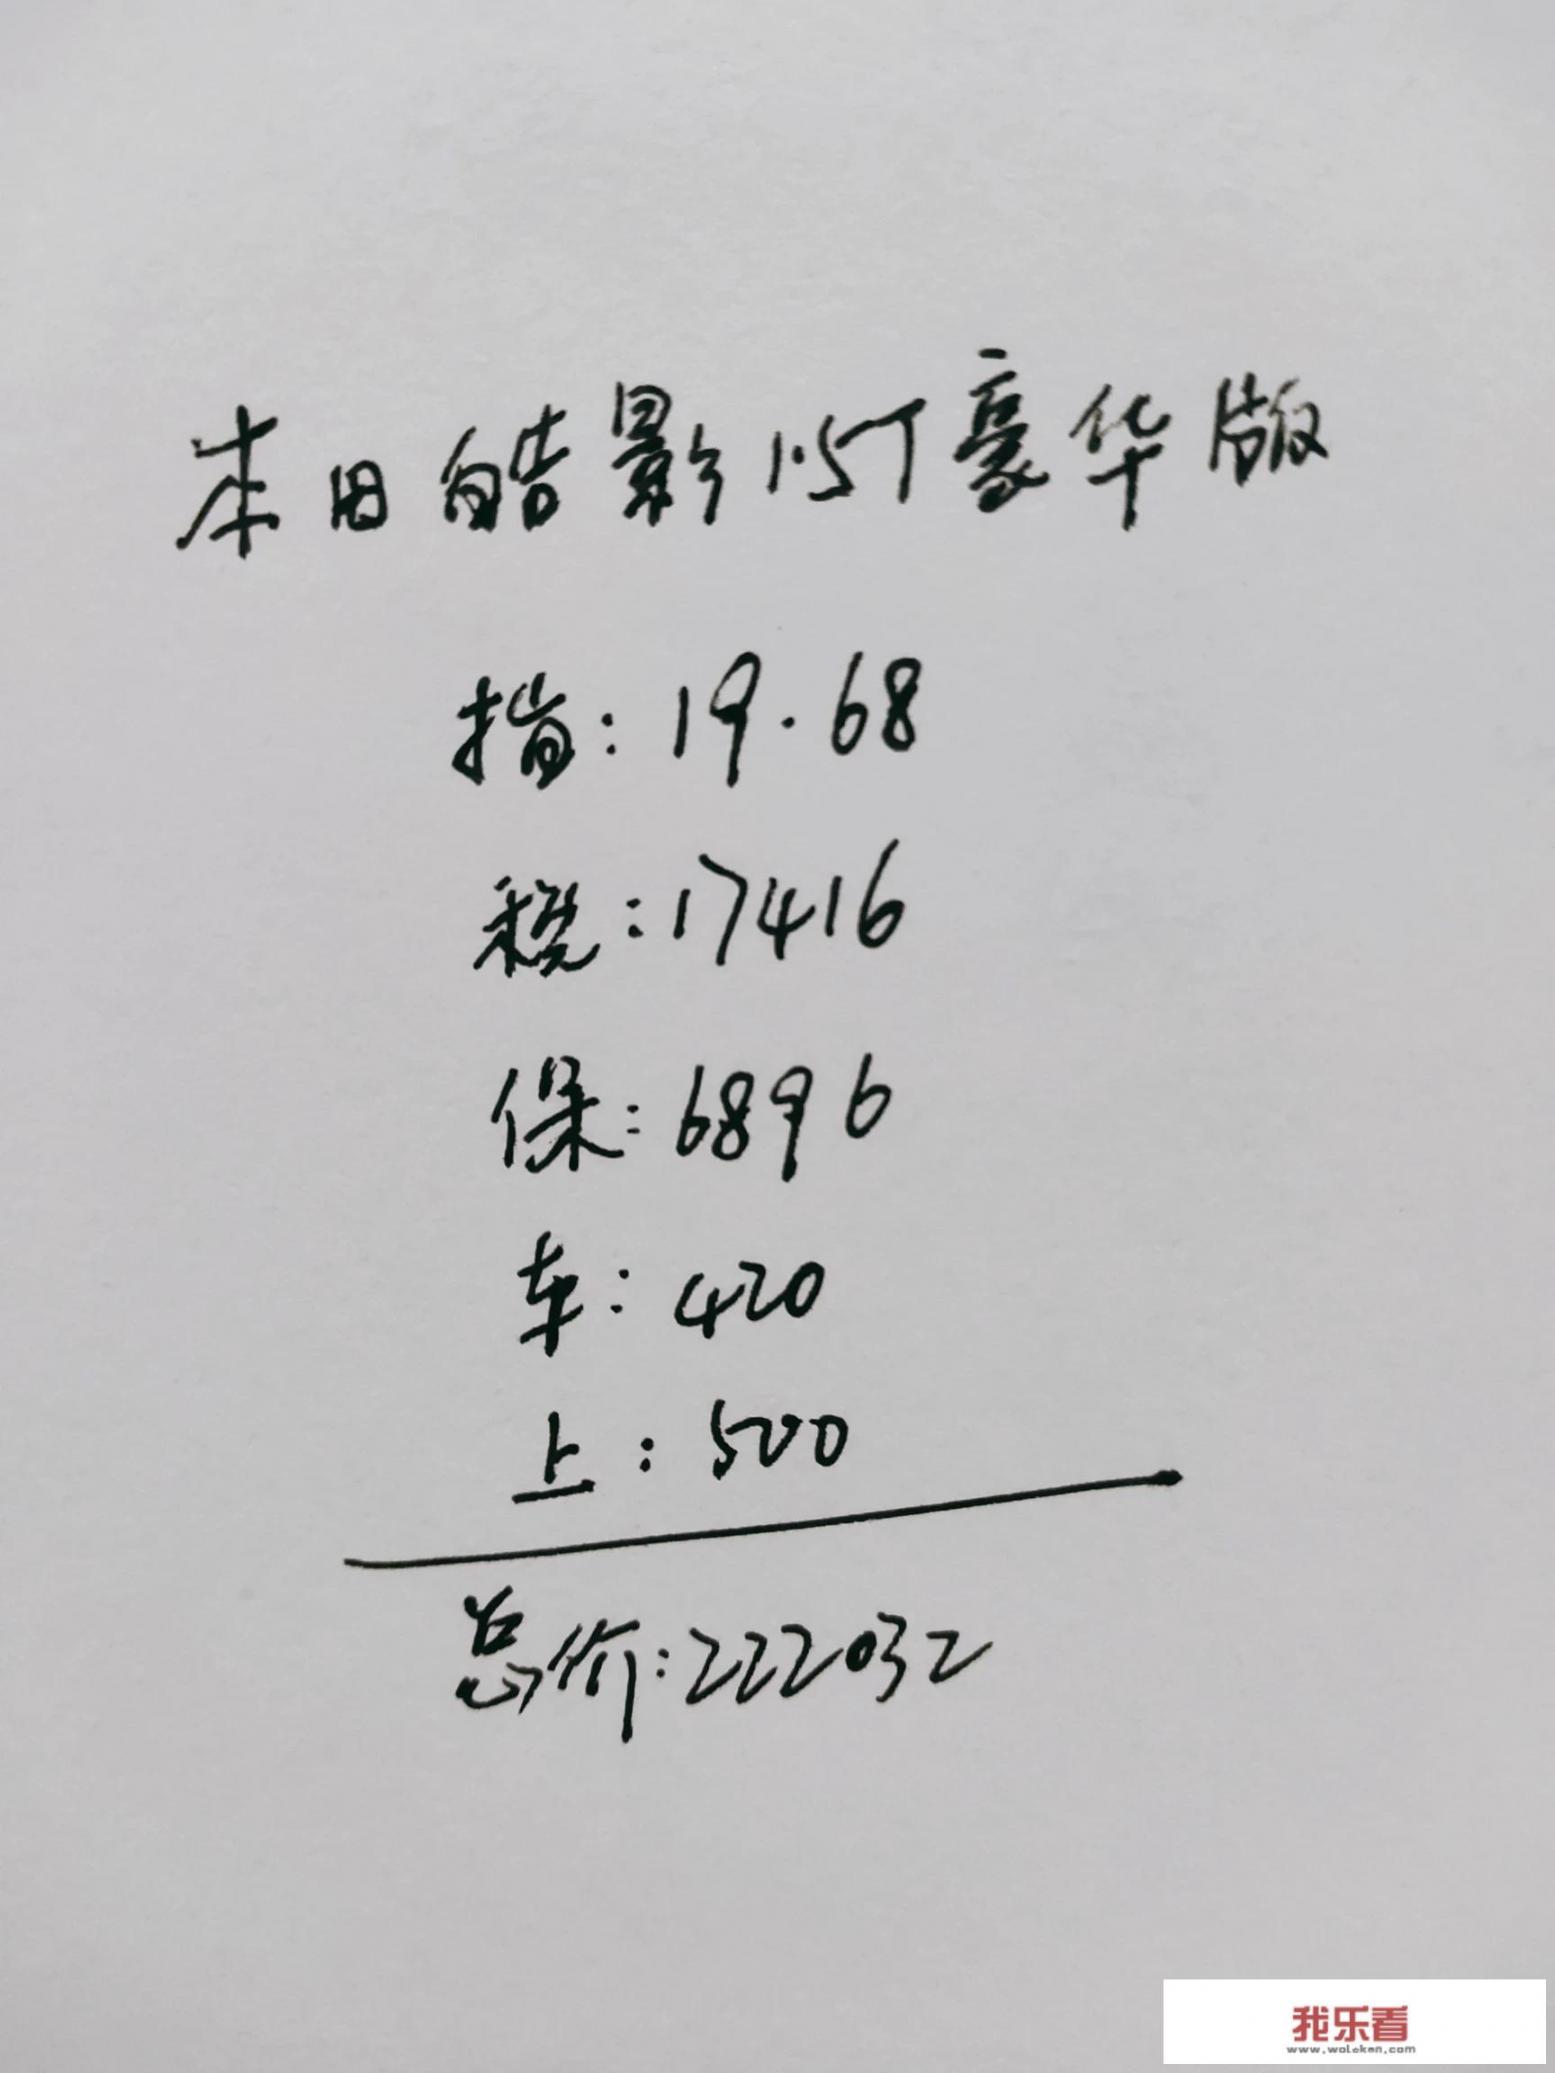 本田皓影1.5T豪华版
指：19.68
税：17416
保：6896
车：420
上：500
总价：222032
我乐看
www.woleken.com